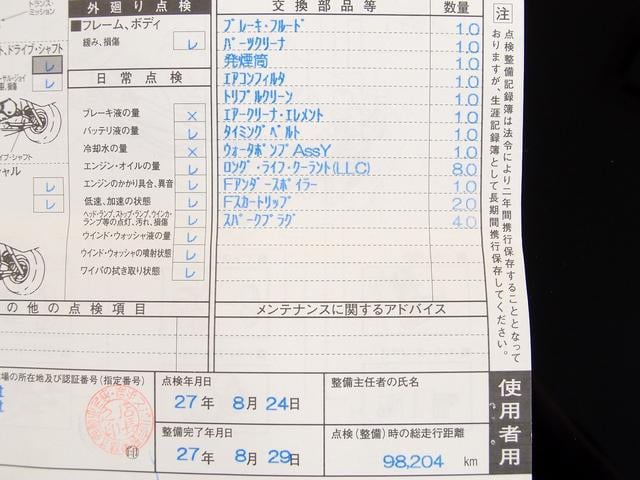 トランス・
ミッション
ト、ドライブ・シャフト
レ
レ
シャル
レ
レ
外廻り点検
■フレーム、ボディ
緩み、損傷 レ
日常点検
ブレーキ液の量 ×
バッテリ液の量 レ
冷却水の量 ×
エンジン・オイルの量 レ
エンジンのかかり具合、異音 レ
低速、加速の状態 レ
ヘッド・ランプ、ストップ・ランプ、ウインカ・
ランプ等の点灯、汚れ、損傷 レ
ウインド・ウォッシャ液の量 レ
ウインド・ウォッシャの噴射状態 レ
ワイパの拭き取り状態 レ
交換部品等 数量
ﾌﾞﾚｰｷ･ﾌﾙｰﾄﾞ 1.0
ﾊﾟｰﾂｸﾘｰﾅ 1.0
発煙筒 1.0
ｴｱｺﾝﾌｨﾙﾀ 1.0
ﾄﾘﾌﾟﾙｸﾘｰﾝ 1.0
ｴｱｰｸﾘｰﾅ･ｴﾚﾒﾝﾄ 1.0
ﾀｲﾐﾝｸﾞﾍﾞﾙﾄ 1.0
ｳｫｰﾀﾎﾟﾝﾌﾟAssY 1.0
ﾛﾝｸﾞ･ﾗｲﾌ･ｸｰﾗﾝﾄ(LLC) 8.0
Fｱﾝﾀﾞｰｽﾎﾟｲﾗｰ 1.0
Fｽｶｰﾄﾘｯﾌﾟ 2.0
ｽﾊﾟｰｸﾌﾟﾗｸﾞ 4.0
の他の点検項目
メンテナンスに関するアドバイス
場の所在地及び認証番号(指定番号)
点検年月日
27年 8月 24日
整備主任者の氏名
整備完了年月日
27年 8月 29日
点検(整備)時の総走行距離
98,204 km
注
点検整備記録簿は法令により二年間携行保存することとなって
おりますが、生涯記録簿として長期間携行保存してください。
使用者用